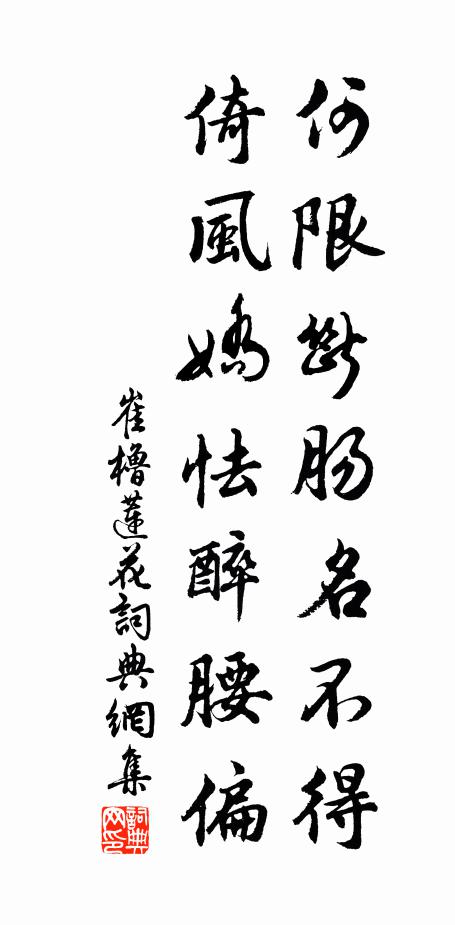 何限斷腸名不得
倚風嬌怯醉腰偏
崔櫓蓮花詞典網集
詞典網印